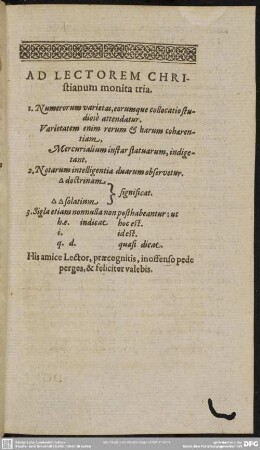 AD LECTOREM CHRI-
stianum monita tria.
1. Numerorum varietas, eorumque collocatio stu-
diosè attendatur.
Varietatem enim rerum & harum cohæren-
tiam,
Mercurialium instar statuarum, indige-
tant.
2. Notarum intelligentia duarum observetur.
△ doctrinam
significat.
△ △ solatium
3. Sigla etiam nonnulla non posthabeantur: ut
h.e. indicat hoc est.
i. id est.
q. d. quasi dicat.
His amice Lector, præcognitis, inoffenso pede
perges, & feliciter valebis.
DFG